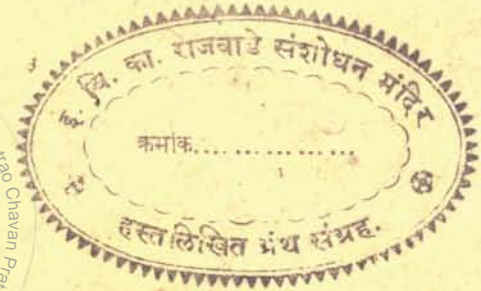 वि. का. राजवाडे संशोधन मंदिर
क्रमांक...............
हस्तलिखित ग्रंथ संग्रह.
rao Chavan Pra